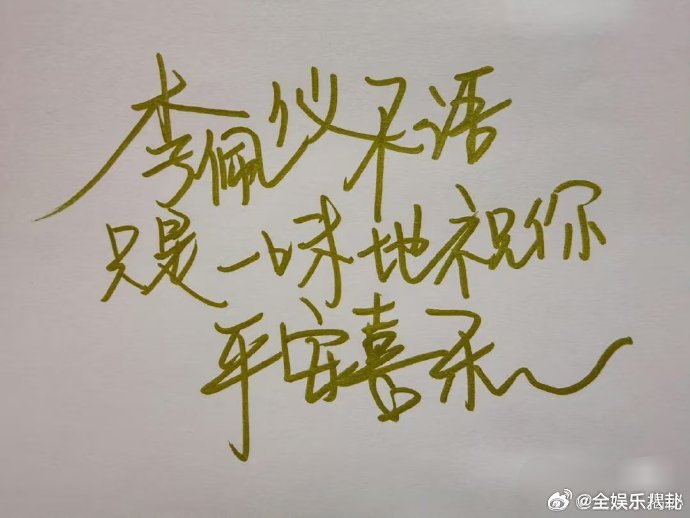 李佩仪不语
只是一味地祝你
平安喜乐~
@全娱乐揭秘